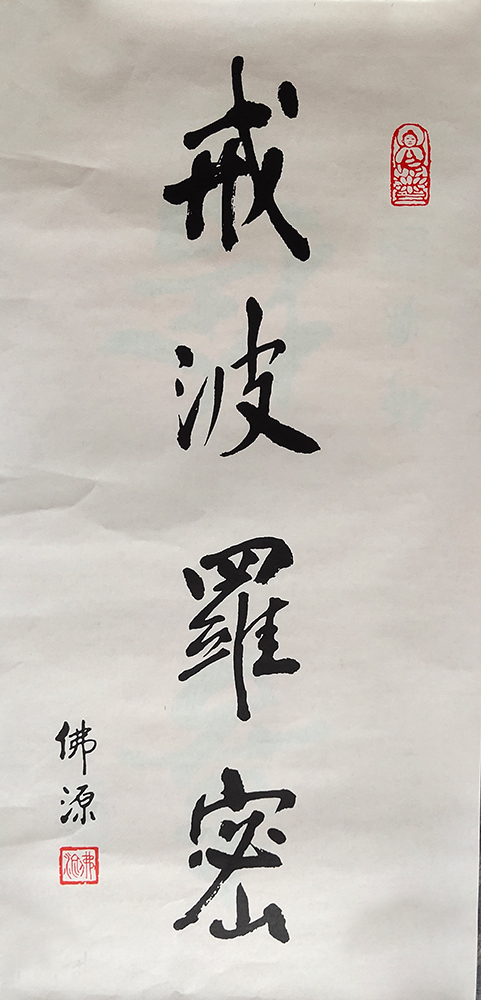 戒波羅密
佛源
佛源